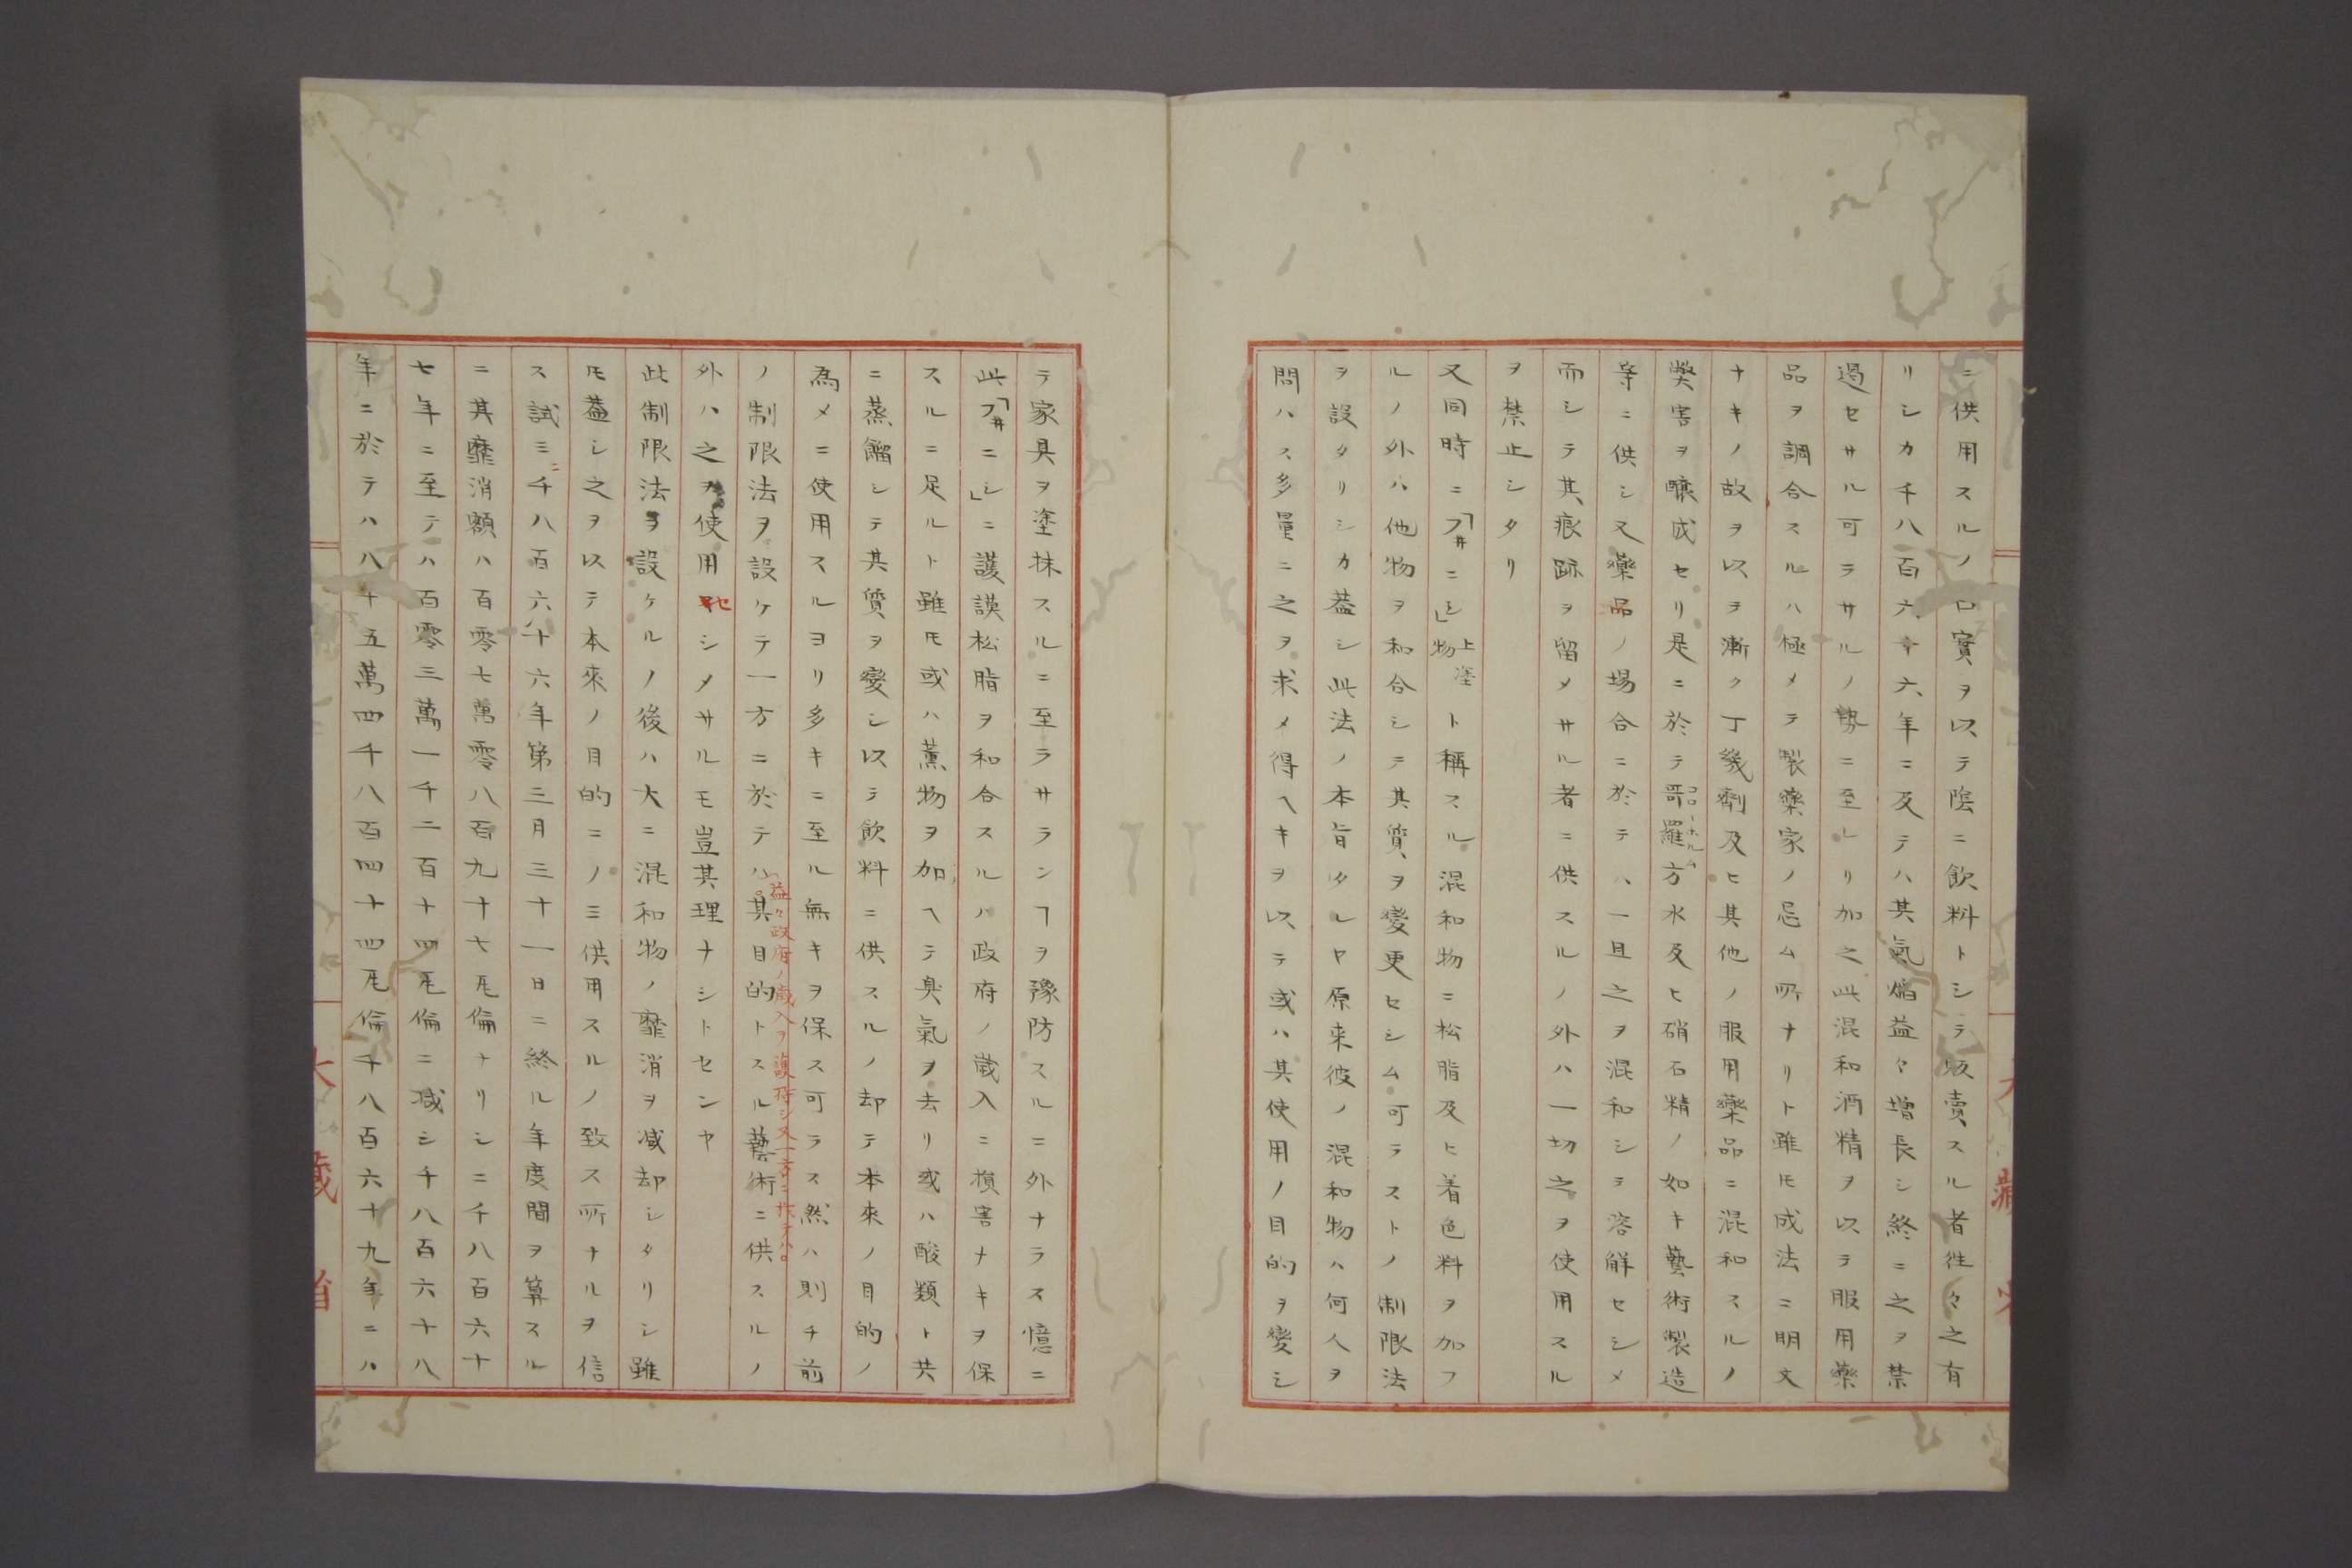 ニ供用スルノ口實ヲ以テ陰ニ飲料トシテ販賣スル者徃々之有
リシカ千八百六十六年ニ及テハ其氣焔益々増長シ終ニ之ヲ禁
過セサル可ラサルノ勢ニ至レリ加之此混和酒精ヲ以テ服用藥
品ヲ調合スルハ極メテ製藥家ノ忌ム所ナリト雖𪜈成法ニ明文
ナキノ故ヲ以テ漸ク丁幾劑及ヒ其他ノ服用藥品ニ混和スルノ
弊害ヲ釀成セリ是ニ於テ哥羅方水及ヒ硝石精ノ如キ藝術製造
コロヽホルム
等ニ供シ又藥品ノ場合ニ於テハ一旦之ヲ混和シテ溶解セシメ
而シテ其痕跡ヲ留メサル者ニ供スルノ外ハ一切之ヲ使用スル
ヲ禁止シタリ
又同時ニ「フ井ニシ」上塗物ト稱スル混和物ニ松脂及ヒ着色料ヲ加フ
ルノ外ハ他物ヲ和合シテ其質ヲ變更セシム可ラストノ制限法
ヲ設タリシカ蓋シ此法ノ本旨タルヤ原来彼ノ混和物ハ何人ヲ
問ハス多量ニ之ヲ求メ得ヘキヲ以テ或ハ其使用ノ目的ヲ變シ
テ家具ヲ塗抹スルニ至ラサランヿヲ豫防スルニ外ナラス憶ニ
此「フ井ニシ」ニ護謨松脂ヲ和合スルハ政府ノ歳入ニ損害ナキヲ保
スルニ足ルト雖𪜈或ハ薫物ヲ加ヘテ臭氣ヲ去リ或ハ酸類ト共
ニ蒸餾シテ其質ヲ變シ以テ飲料ニ供スルノ却テ本來ノ目的ノ
為メニ使用スルヨリ多キニ至ル無キヲ保ス可ラス然ハ則チ前
ノ制限法ヲ設ケテ一方ニ於テハ其目的トスル藝術ニ供スルノ
益々政府ノ歳入ヲ護存シ又一方ニ於テハ
外ハ之ヲ使用セシメサルモ豈其理ナシトセンヤ
此制限法ヲ設ケルノ後ハ大ニ混和物ノ靡消ヲ減却シタリシ雖
𪜈蓋シ之ヲ以テ本來ノ目的ニノミ供用スルノ致ス所ナルヲ信
ス試ミニ千八百六十六年第三月三十一日ニ終ル年度間ヲ算スル
ニ其靡消額ハ百零七萬零八百九十七瓦倫ナリシニ千八百六十
七年ニ至テハ百零三萬一千二百十四瓦倫ニ減シ千八百六十八
年ニ於テハ八十五萬四千八百四十四瓦倫千八百六十九年ニハ
大藏省